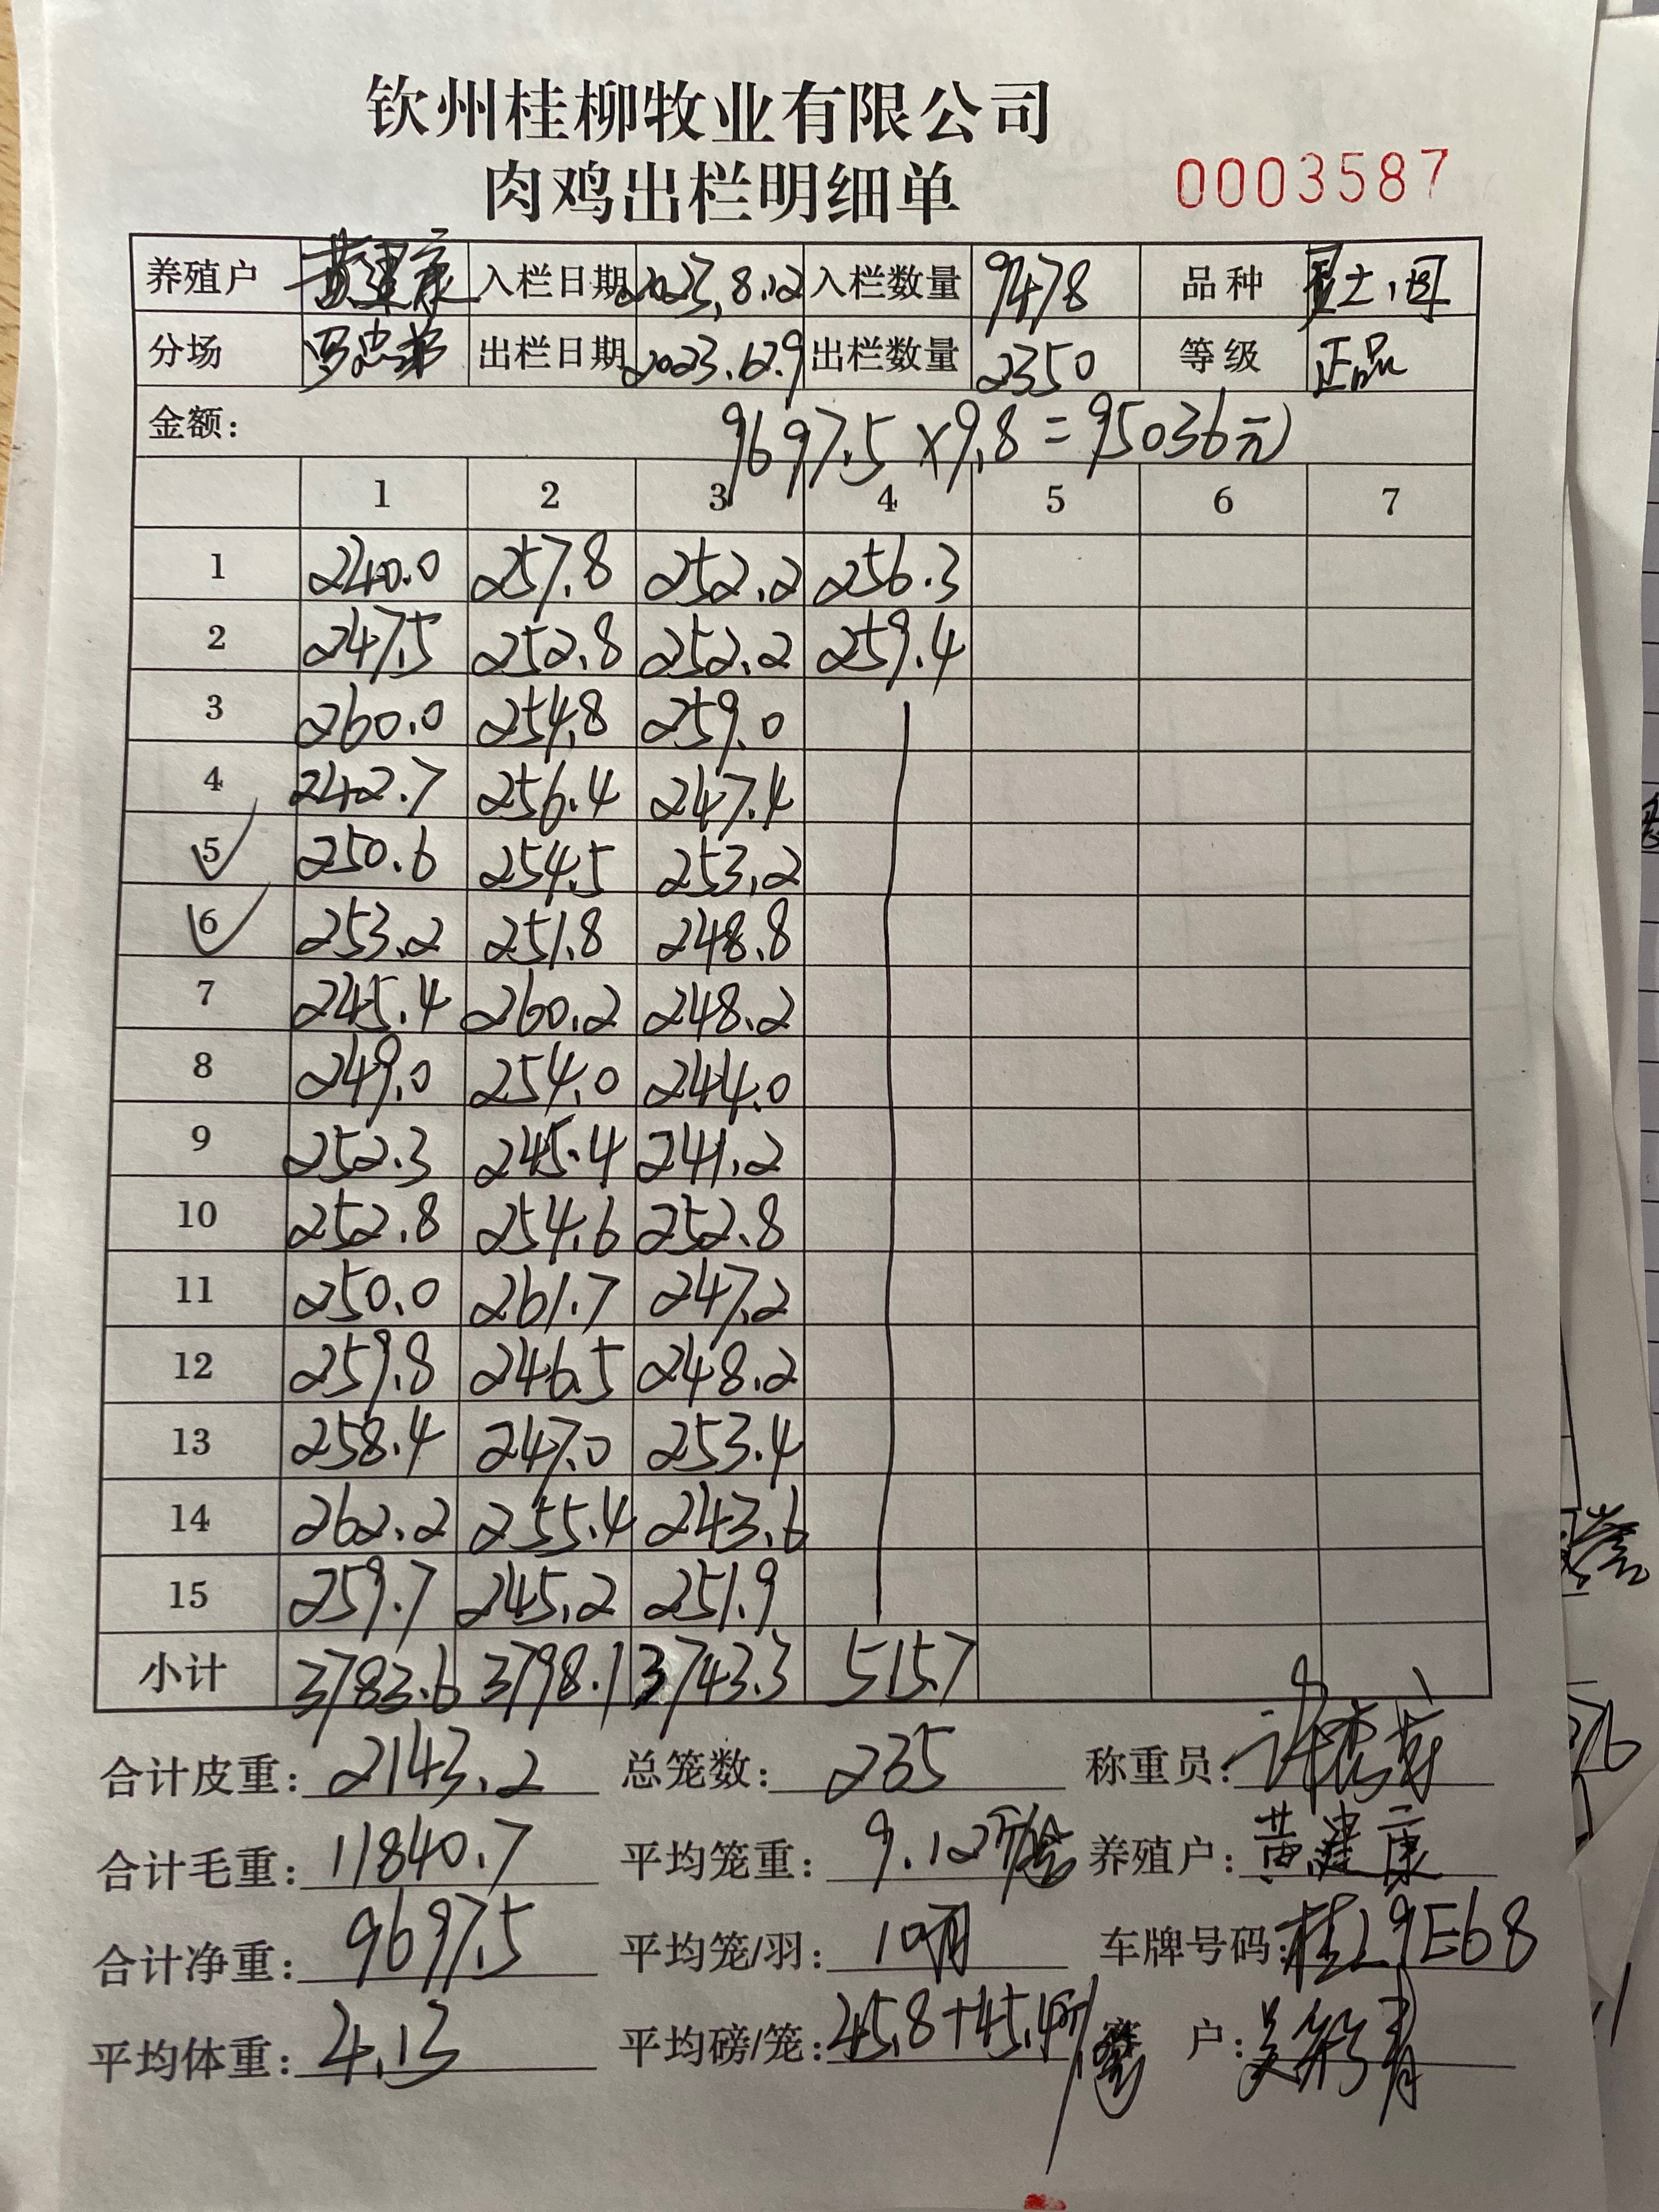 钦州桂柳牧业有限公司
肉鸡出栏明细单 0003587
养殖户 黄建康 入栏日期 2023.8.12 入栏数量 9478 品种
分场 出栏日期 2023.12.9 出栏数量 2350 等级 正品
金额: 9697.5×9.8=95036元
1 2 3 4 5 6 7
1 240.0 257.8 252.2 256.3
2 247.5 252.8 252.2 259.4
3 260.0 254.8 259.0
4 242.7 256.4 247.4
5 250.6 254.5 253.2
6 253.2 251.8 248.8
7 245.4 260.2 248.2
8 249.0 254.0 244.0
9 252.3 245.4 241.2
10 252.8 254.6 252.8
11 250.0 261.7 247.2
12 259.8 246.5 248.2
13 258.4 247.0 253.4
14 262.2 255.4 243.6
15 259.7 245.2 251.9
小计 3783.6 3798.1 3743.3 515.7
合计皮重: 2143.2 总笼数: 235 称重员:
合计毛重: 11840.7 平均笼重: 9.12 养殖户: 黄建康
合计净重: 9697.5 平均笼/羽: 10 车牌号码: 桂L9E68
平均体重: 4.13 平均磅/笼: 45.8+45.4 客 户: